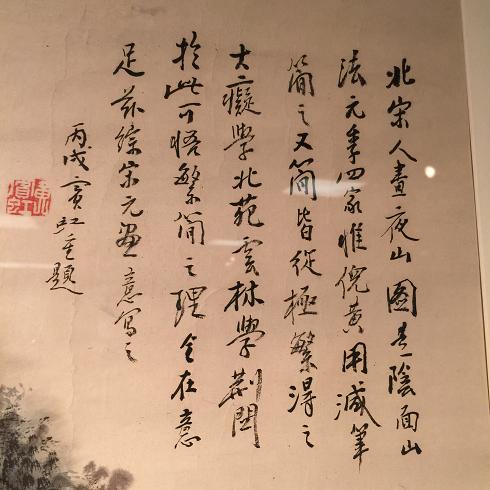 北宋人畫夜山圖是陰面山
法元季四家惟倪黃用減筆
簡之又簡皆從極繁得之
大癡學北苑雲林學荆關
於此可悟繁簡之理全在意
足茲綜宋元畫意寫之
丙戌賓虹重題